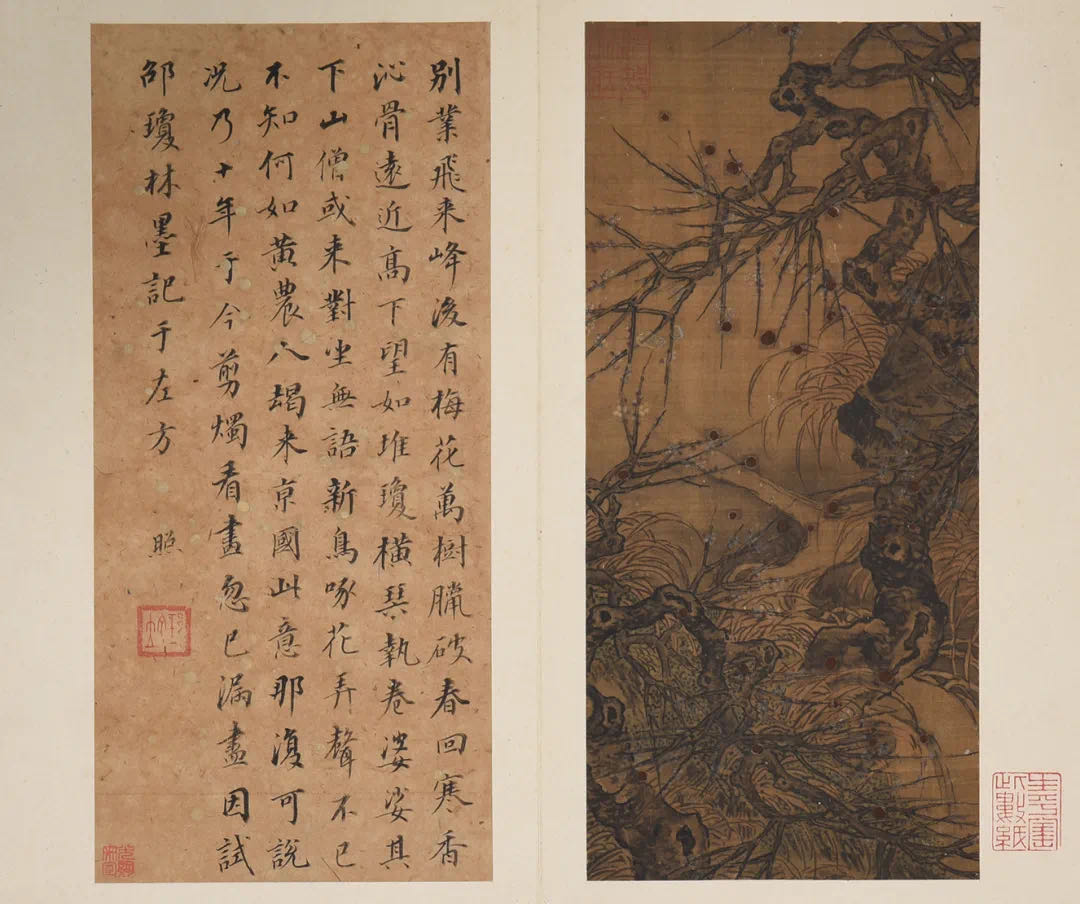 別業飛来峰後有梅花萬樹臘破春回寒香
沁骨遠近高下望如堆瓊橫琹執卷婆娑其
下山僧或来對坐無語新鳥啄花弄聲不已
不知何如黃農人朅来京國此意那復可說
况乃十年于今剪燭看畫忽已漏盡因試
邵瓊林墨記于左方 照